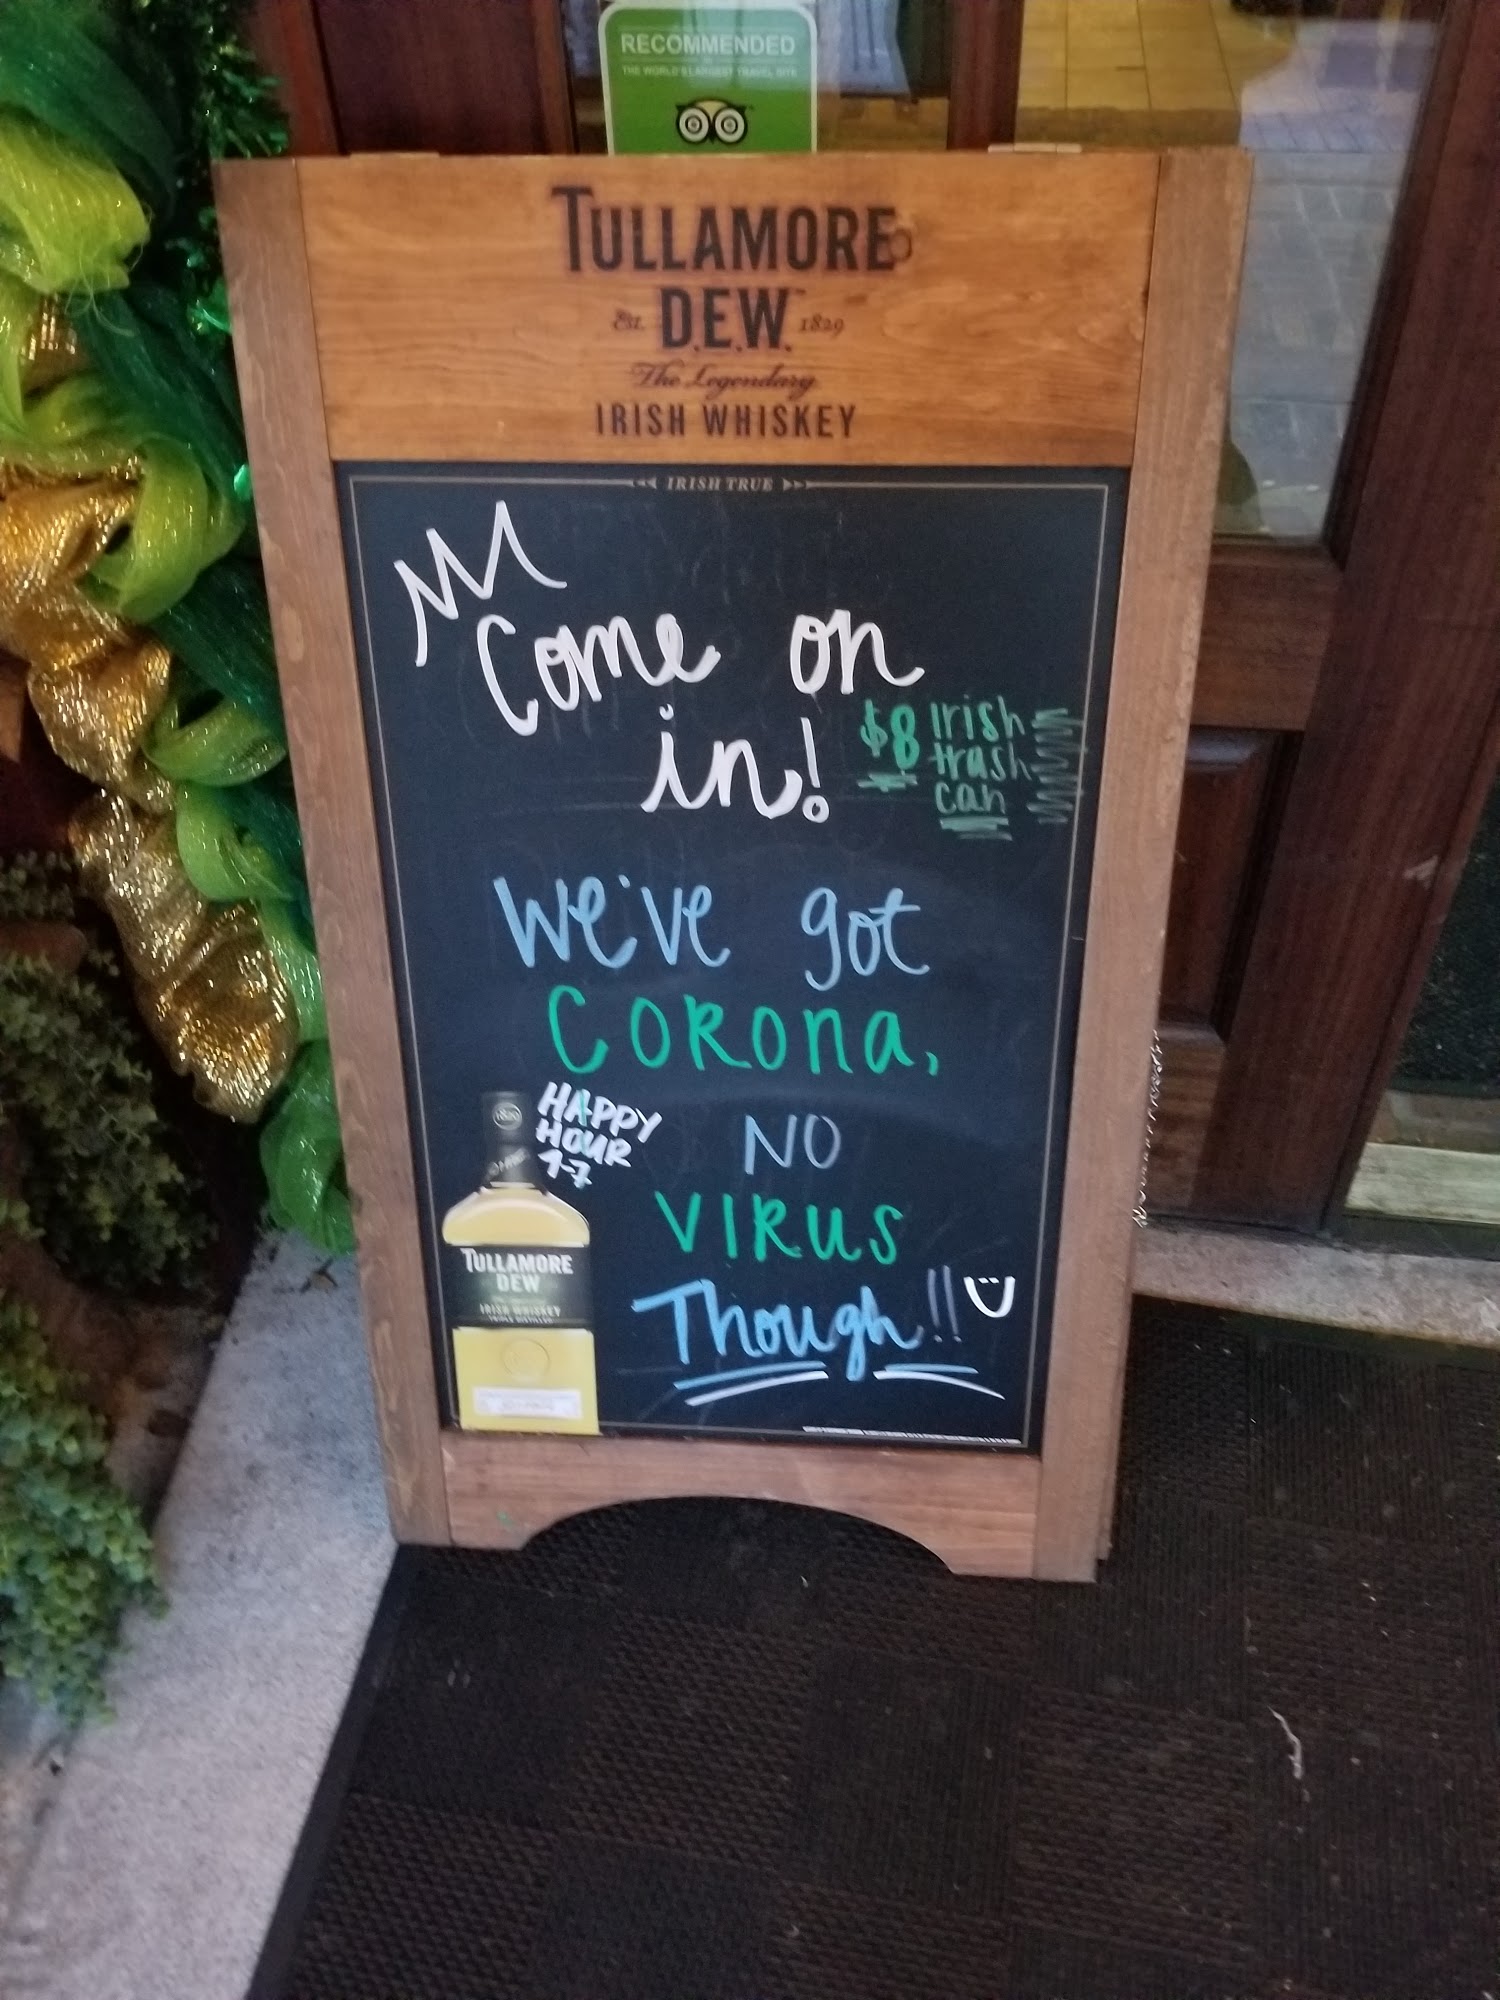 RECOMMENDED
THE WORLD'S LARGEST TRAVEL SITE
TULLAMORE
EST. D.E.W. 1829
The Legendary
IRISH WHISKEY
IRISH TRUE
Come on
in!
$8 Irish
trash
can
We've got
CORONA,
NO
VIRUS
Though!!
HAPPY
HOUR
4-7
TULLAMORE
DEW
IRISH WHISKEY
TRIPLE DISTILLED